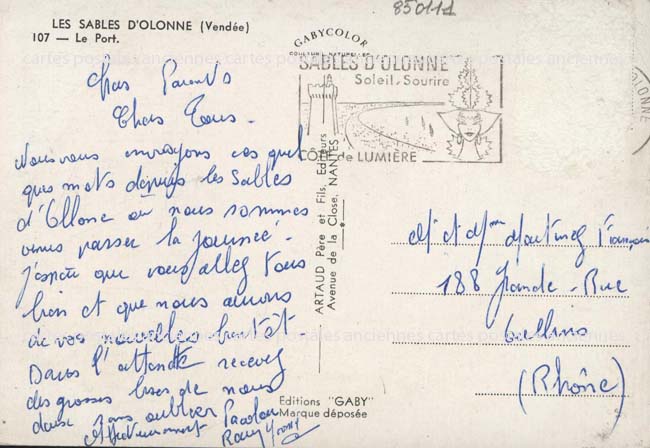 LES SABLES D'OLONNE (Vendée)
107 — Le Port.
850111
GABYCOLOR
COULEURS NATURELLES
SABLES D'OLONNE
Soleil. Sourire
CÔTE de LUMIÈRE
OLONNE
cartes postales anciennes cartes postales anciennes
Chers Parents
Chers Tous.
Nous vous envoyons ces quel
ques mots depuis les Sables
d'Ollone où nous sommes
venus passer la journée.
J'espère que vous allez tous
bien et que nous aurons
de vos nouvelles bientôt
Dans l'attente recevez
des grosses bises de nous
deux sans oublier
Affectueusement
ARTAUD Père et Fils, Editeurs
Avenue de la Close, NANTES
Mr et Mme Martinez François
188 Grande-Rue
Oullins
(Rhône)
Editions "GABY"
Marque déposée